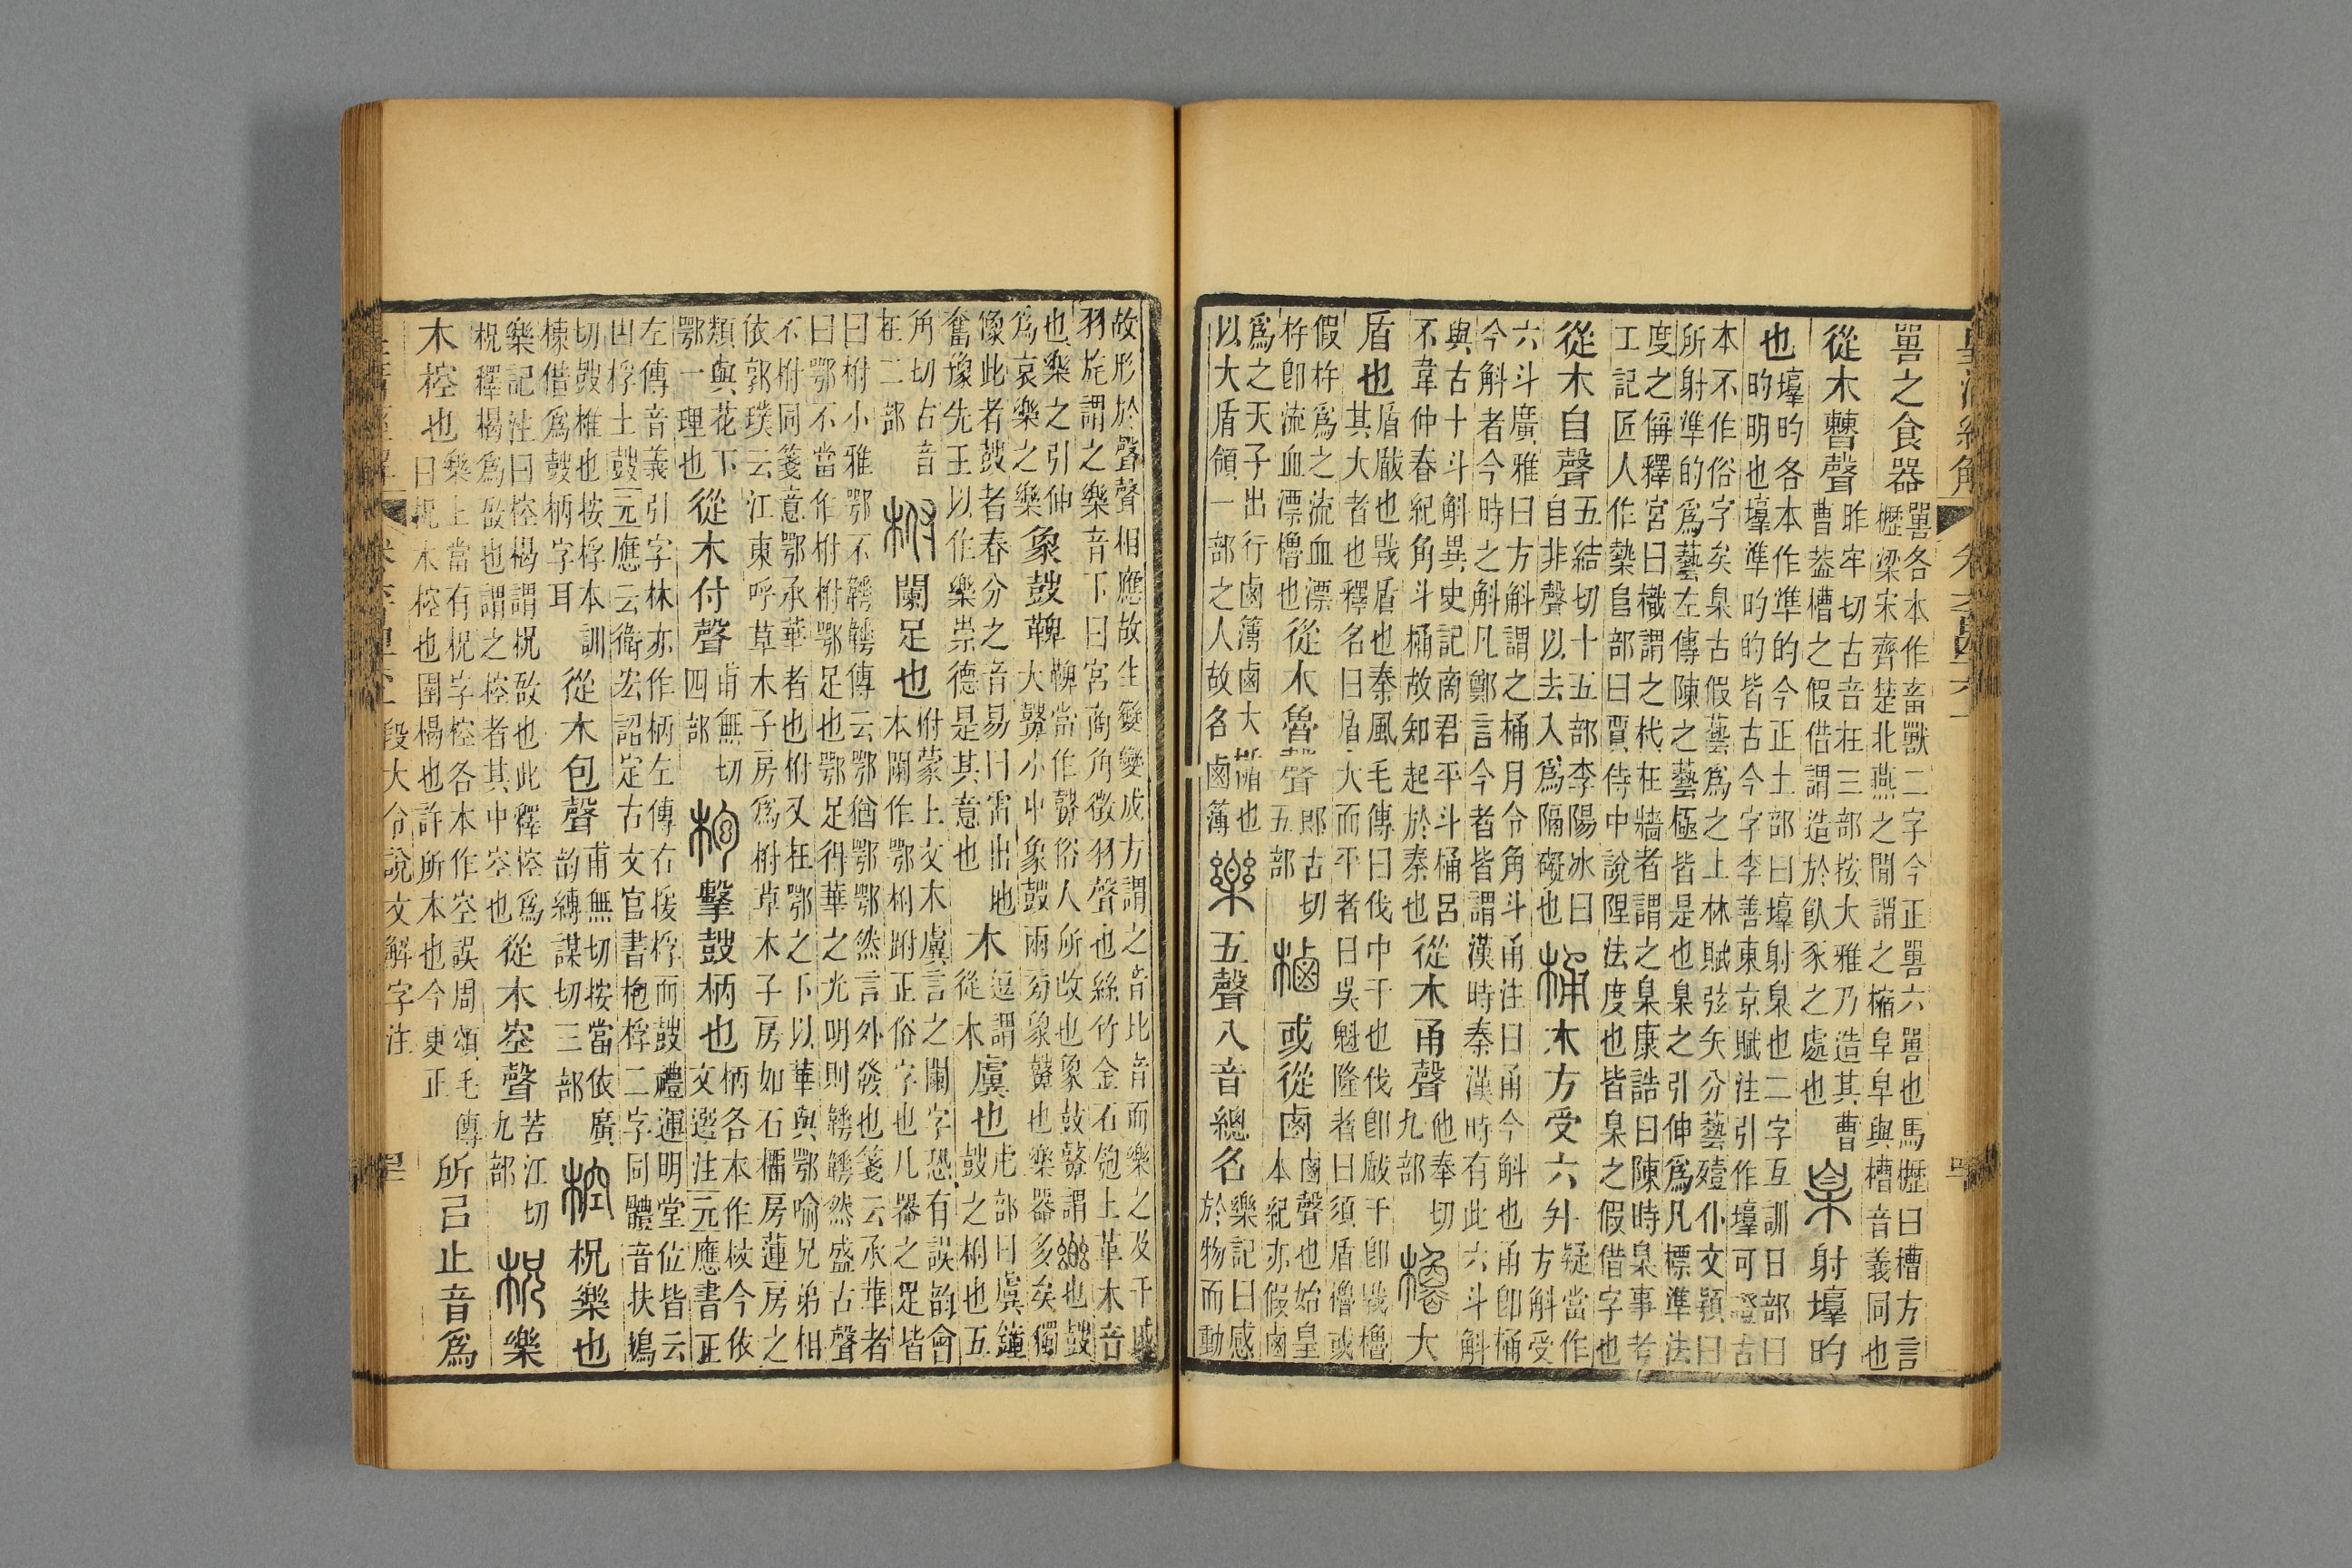 嘼之食器嘼各本作畜獸二字今正嘼六嘼也馬櫪曰槽方言
櫪梁宋齊楚北燕之閒謂之樎皁皁與槽音義同也
從木𣍘聲昨牢切古音在三部按大雅乃造其曹
曹葢槽之假借謂造於飤豕之處也臬射𡐦旳
也𡐦旳各本作準的今正土部曰𡐦射臬也二字互訓日部曰
旳明也𡐦準旳的皆古今字李善東京賦注引作𡐦可證古
本不作俗字矣臬古假藝爲之上林賦弦矢分藝殪仆文穎曰
所射準的爲藝左傳陳之藝極皆是也臬之引伸爲凡標準法
度之偁釋宮曰樴謂之杙在牆者謂之臬康誥曰陳時臬事考
工記匠人作槷𨸏部曰賈侍中說隉法度也皆臬之假借字也
從木自聲五結切十五部李陽冰曰
自非聲以去入爲隔礙也桶木方受六升疑當作
方斛受
六斗廣雅曰方斛謂之桶月令角斗甬注曰甬今斛也甬卽桶
今斛者今時之斛凡鄭言今者皆謂漢時秦漢時有此六斗斛
與古十斗斛異史記商君平斗桶呂
不韋仲春紀角斗桶故知起於秦也從木甬聲他奉切
九部櫓大
盾也盾瞂也戰盾也秦風毛傳曰伐中干也伐卽瞂干卽戰櫓
其大者也釋名曰盾大而平者曰吳魁隆者曰須盾櫓或
假杵爲之流血漂
杵卽流血漂櫓也從木魯聲郎古切
五部樐或從鹵鹵聲也始皇
本紀亦假鹵
爲之天子出行鹵簿鹵大楯也
以大盾領一部之人故名鹵簿樂五聲八音總名樂記曰感
於物而動
故形於聲聲相應故生變變成方謂之音比音而樂之及干戚
羽旄謂之樂音下曰宮商角徵羽聲也絲竹金石匏土革木音
也樂之引伸
爲哀樂之樂象鼓鞞鞞當作鼙俗人所改也象鼓鼙謂也鼓
大鼙小中象鼓兩旁象鼙也樂器多矣獨
像此者鼓者春分之音易曰雷出地
奮豫先王以作樂崇德是其意也木逗謂
從木虡也虍部曰虡鐘
鼓之柎也五
角切古音
在二部柎闌足也柎蒙上文木虡言之闌字恐有誤韵會
本闌作鄂柎跗正俗字也凡器之足皆
曰柎小雅鄂不韡韡傳云鄂猶鄂鄂然言外發也箋云承華者
曰鄂不當作柎柎鄂足也鄂足得華之光明則韡韡然盛古聲
不柎同箋意鄂承華者也柎又在鄂之下以華與鄂喻兄弟相
依郭璞云江東呼草木子房爲柎草木子房如石橊房蓮房之
類與花下
鄂一理也從木付聲甫無切
四部枹擊鼓柄也柄各本作杖今依
文選注元應書正
左傳音義引字林亦作柄左傳右援枹而鼓禮運明堂位皆云
凷桴土鼓元應云衞宏詔定古文官書枹桴二字同體音扶鳩
切鼓椎也按桴本訓
棟借爲鼓柄字耳從木包聲甫無切按當依廣
韵縛謀切三部椌柷樂也
樂記注曰椌楬謂柷敔也此釋椌爲
柷釋楬爲敔也謂之椌者其中空也從木空聲苦江切
九部柷樂
木椌也樂上當有柷字椌各本作空誤周頌毛傳
曰柷木椌也圉楬也許所本也今更正所㠯止音爲
段大令說文解字注